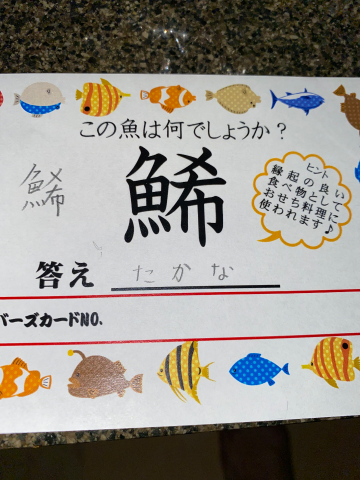 この魚は何でしょうか？
鯑
鯑
ヒント
縁起の良い
食べ物として
おせち料理に
使われます♪
答え たかな
バーズカードNO.